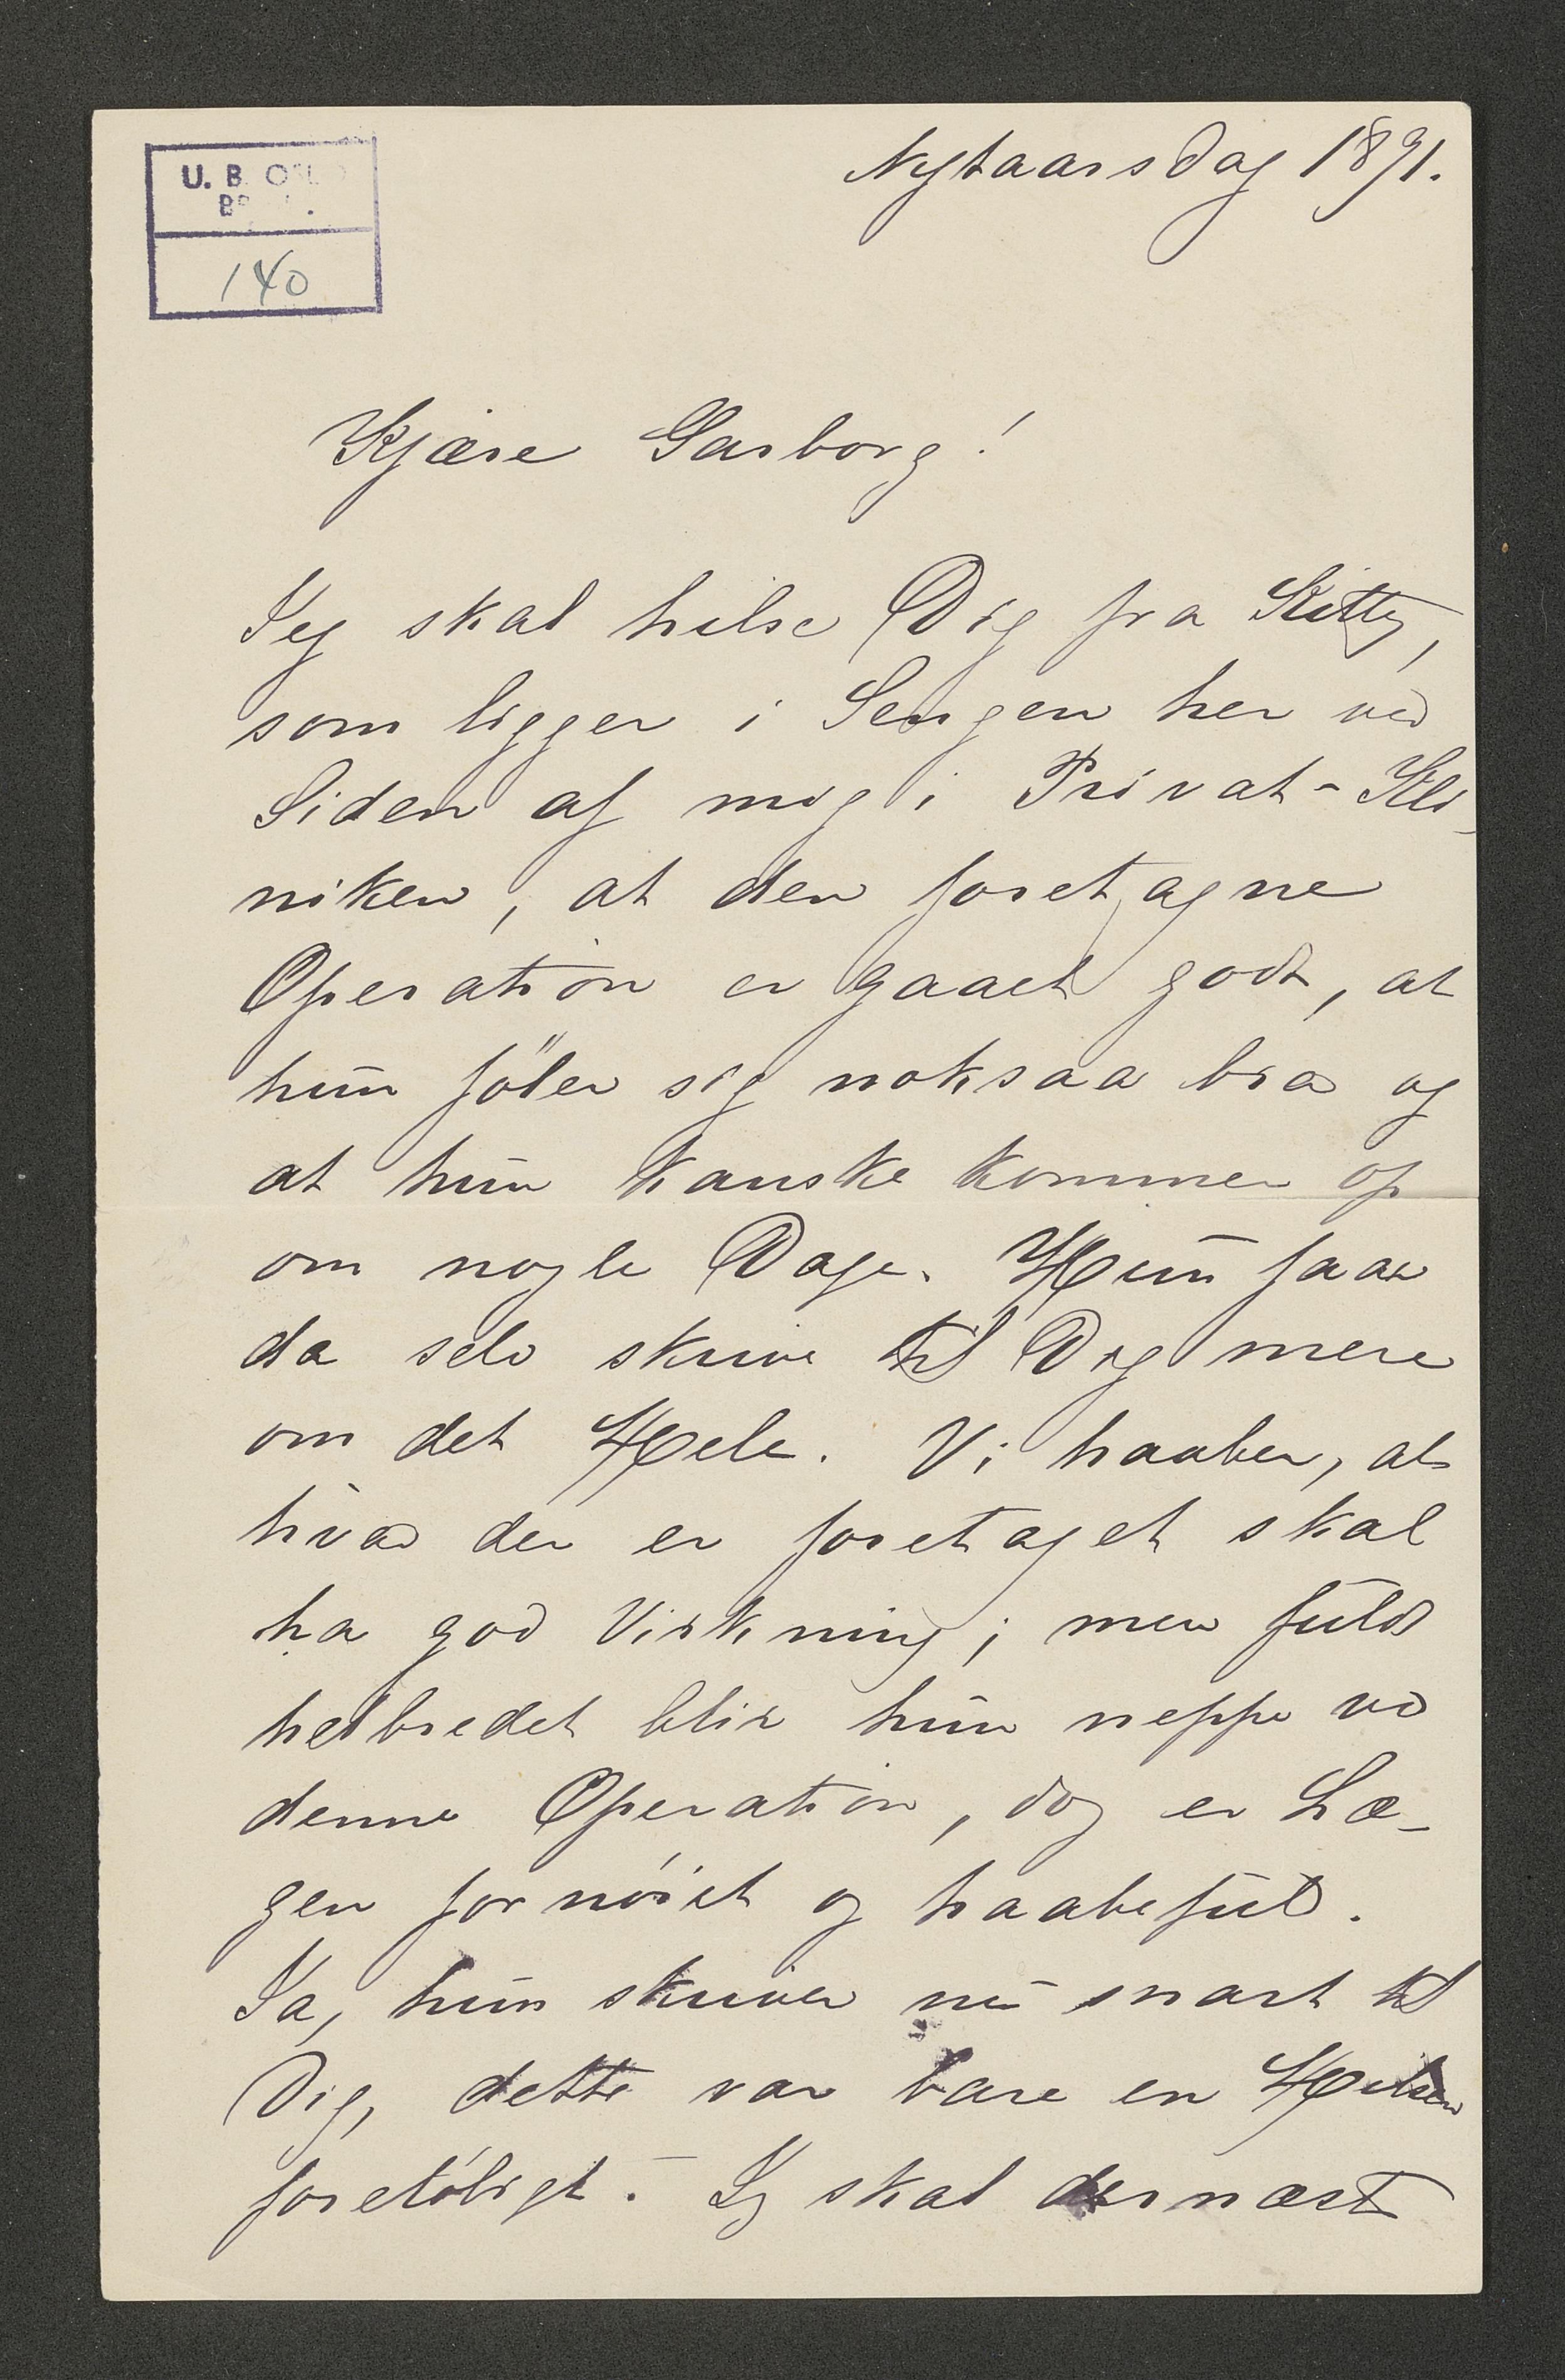 Nytaarsdag 1891.
U. B. OSLO
BR
140
Kjære Garborg!
Jeg skal hilse Dig fra Kitty,
som ligger i Sengen her ved
Siden af mig i Privat-Kli-
niken, at den foretagne
Operation er gaaet godt, at
hun föler sig noksaa bra og
at hun kanske kommer op
om nogle Dage. Hun faar
da selv skrive til Dig mere
om det Hele. Vi haaber, at
hvad der er foretaget skal
ha god Virkning; men fuldt
helbredet blir hun neppe ved
denne Operation, dog er Læ-
gen fornöiet og haabefuld.
Ja, hun skriver nu snart til
Dig, dette var bare en Hilsen
foreløbigt. – Jeg skal dernæst